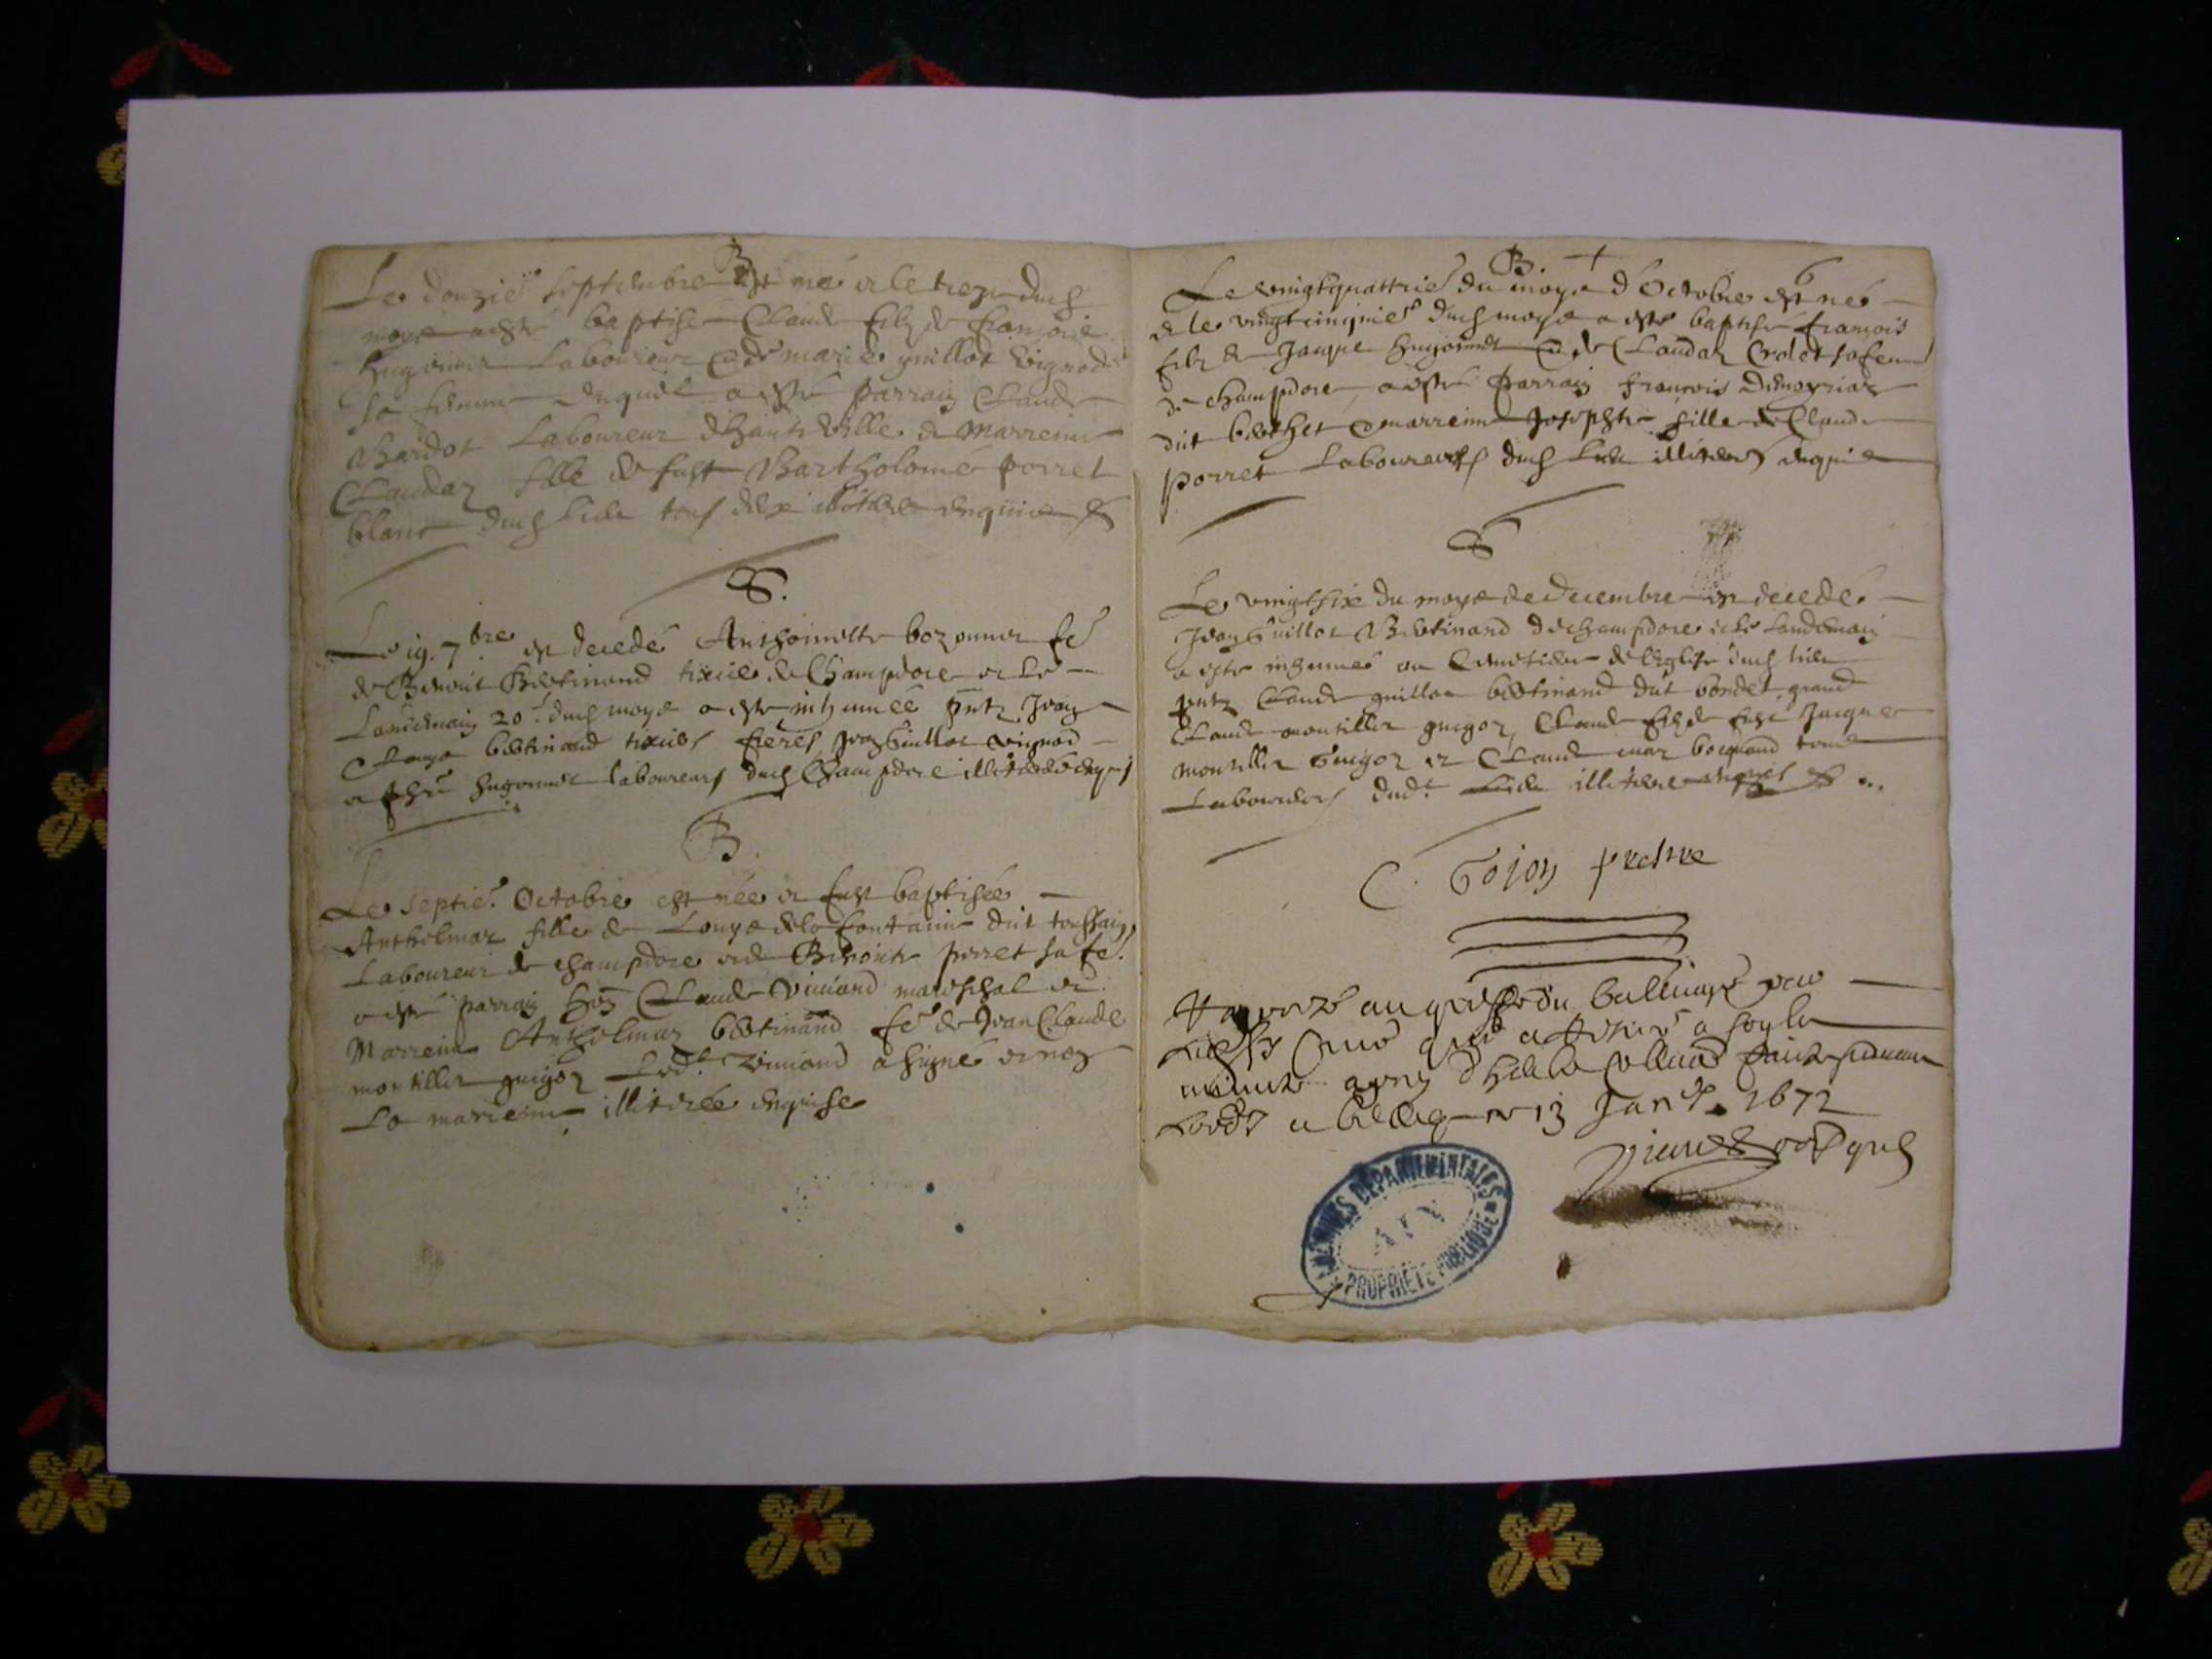 B
Le douzie septembre est né et le treze dud
moys a esté baptisé Claude filz de françois
hugonnet Laboureur et de marie guillot vignod
sa femme duquel a esté parrain Claude
Chardot Laboureur dhauteville et marreine
Claudaz fille de fust Bartholomé porret
blanc dud lieu tous deux illiteres enquis
S.
Le 19. 7bre est decedé Anthoinette bozonnet fe
de Benoit Bertinand tixier de Champdore et le
Landemain 20e dud moys a esté inhumée pntz Jean
Claude bertinand tixiers freres Jean Guillot vignod
et hugonnet laboureurs dud Champdore illiteres enquis
B.
Le septie. Octobre est née et fust baptisée
Anthelmaz fille de Louys de la fontaine dit toussain
Laboureur de champdore et de Benoite porret sa fe.
a esté parrain hon Claude Viviand mareschal et
Marreine Anthelmaz bertinand fe de Jean Claude
montillet guigoz Led. Viviand a signé et non
La marreine illiterée enquise
B. +
Le vingtquattrie du moys d'Octobre est né
et le vingtcinquie dud moys a esté baptisé françois
filz de Jaque hugonnet et de Claudaz Crolet sa feme
de champdore, a esté parrain françois
dit berthet et marreine Josephte fille de Claude
porret Laboureurs dud lieu illiteres enquis
S
Le vingtsix du moys de Decembre est decedé
Jean Guillot Bertinand de champdore et le landemain
a esté inhumé au Cimetiere de l'Eglise dud lieu
pntz Claude guillot bertinand dit bondet, grand
Claude montillet guigoz, Claude filz de fust Jacque
montillet Guigoz et Claude bocquand tous
Laboureurs dud. lieu illiteres enquis
C. Gojon prebtre
au greffe du balliage par
a
Belley ce 13 Janv. 1672
ARCHIVES DEPARTEMENTALES
AIN
PROPRIÉTÉ PUBLIQUE